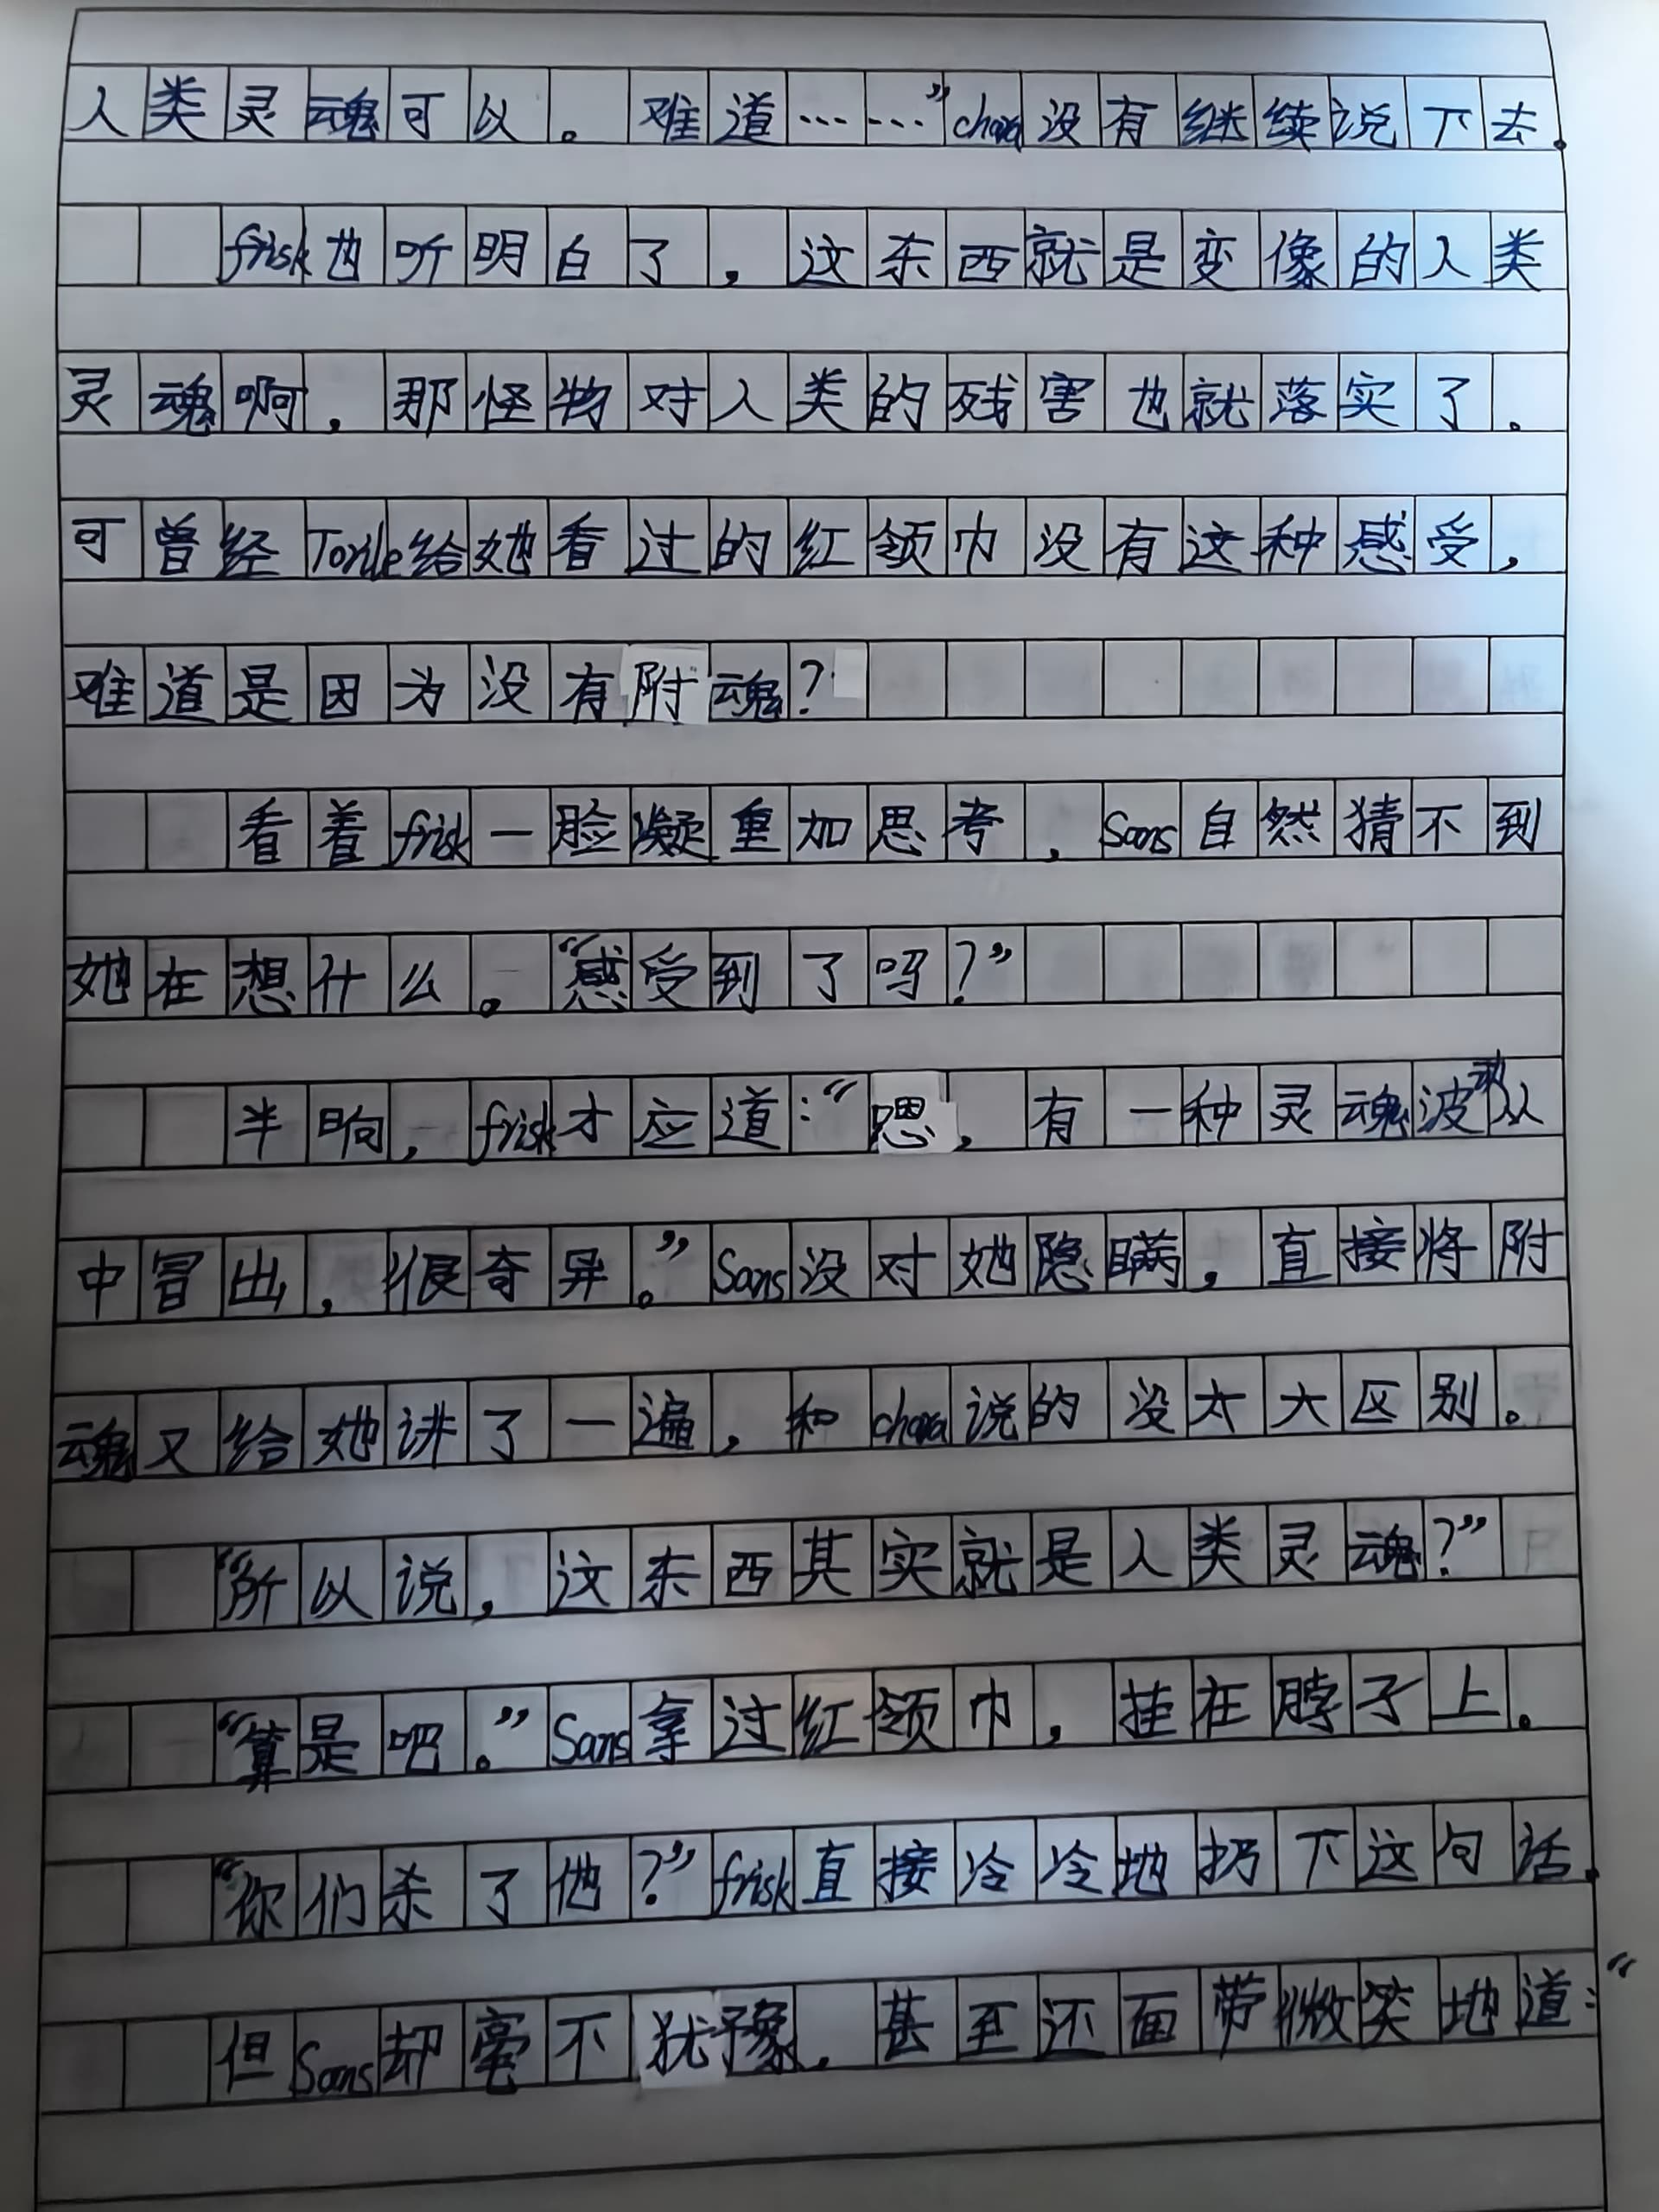 人类灵魂可以。难道……”chara没有继续说下去.
frisk也听明白了，这东西就是变像的人类
灵魂啊，那怪物对人类的残害也就落实了。
可曾经Torile给她看过的红领巾没有这种感受，
难道是因为没有附魂？
看着frisk一脸凝重加思考，Sans自然猜不到
她在想什么。“感受到了吗？”
半晌，frisk才应道：“嗯，有一种灵魂波动从
中冒出，很奇异。”Sans没对她隐瞒，直接将附
魂又给她讲了一遍，和chara说的没太大区别。
“所以说，这东西其实就是人类灵魂？”
“算是吧。”Sans拿过红领巾，挂在脖子上。
“你们杀了他？”frisk直接冷冷地扔下这句话.
但Sans却毫不犹豫，甚至还面带微笑地道：“